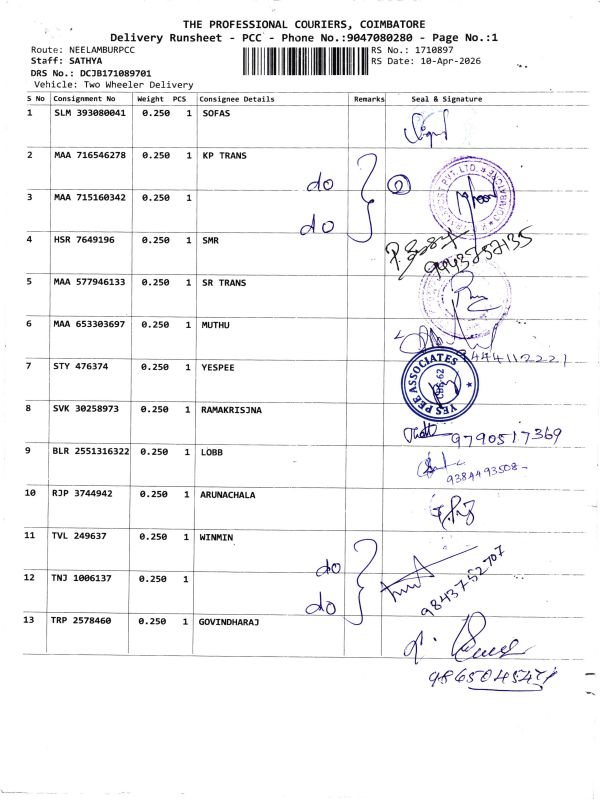 THE PROFESSIONAL COURIERS, COIMBATORE
Delivery Runsheet - PCC - Phone No.:9047080280 - Page No.:1
Route: NEELAMBURPCC RS No.: 1710897
Staff: SATHYA RS Date: 10-Apr-2026
DRS No.: DCJB171089701
Vehicle: Two Wheeler Delivery
S No Consignment No Weight PCS Consignee Details Remarks Seal & Signature
1 SLM 393080041 0.250 1 SOFAS
2 MAA 716546278 0.250 1 KP TRANS
do 2
3 MAA 715160342 0.250 1
do
4 HSR 7649196 0.250 1 SMR
9443757135
5 MAA 577946133 0.250 1 SR TRANS
6 MAA 653303697 0.250 1 MUTHU
9444112221
7 STY 476374 0.250 1 YESPEE
YES PEE ASSOCIATES
CBE-62
8 SVK 30258973 0.250 1 RAMAKRISJNA
9790517369
9 BLR 2551316322 0.250 1 LOBB
9384493508
10 RJP 3744942 0.250 1 ARUNACHALA
11 TVL 249637 0.250 1 WINMIN
do
9843752707
12 TNJ 1006137 0.250 1
do
13 TRP 2578460 0.250 1 GOVINDHARAJ
9865045471